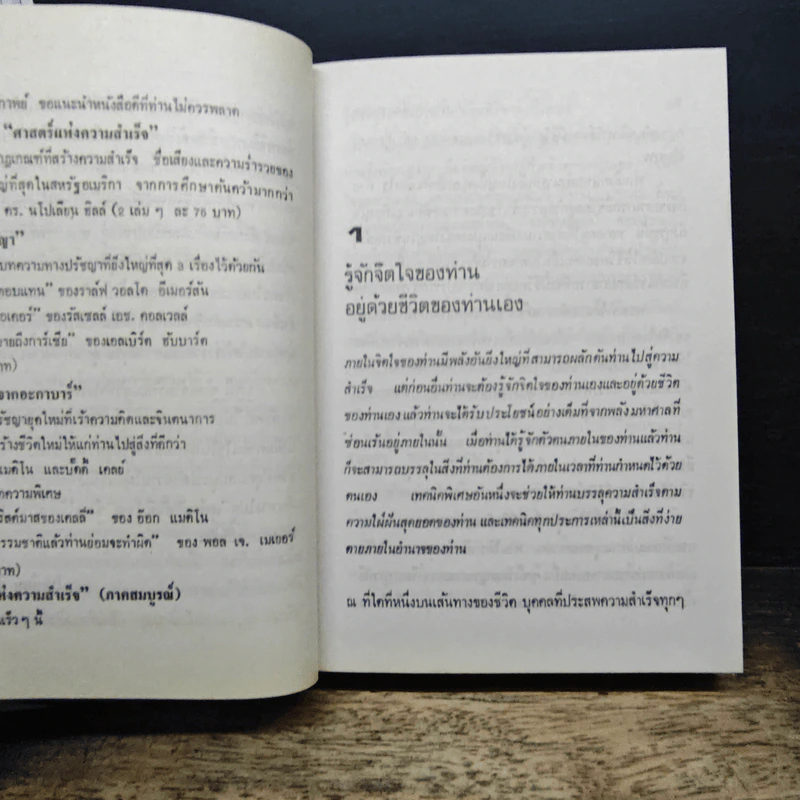 ภาพย์ ขอแนะนำหนังสือดีที่ท่านไม่ควรพลาด
“ศาสตร์แห่งความสำเร็จ”
กฎเกณฑ์ที่สร้างความสำเร็จ ชื่อเสียงและความร่ำรวยของ
ญ่ที่สุดในสหรัฐอเมริกา จากการศึกษาค้นคว้ามากกว่า
ดร. นโปเลียน ฮิลล์ (2 เล่ม ๆ ละ 75 บาท)
ญา”
บทความทางปรัชญาที่ยิ่งใหญ่ที่สุด 3 เรื่องไว้ด้วยกัน
ตอบแทน” ของราล์ฟ วอลโด อีเมอร์สัน
ของรัสเซลล์ เอช. คอลเวลล์
ายถึงการ์เซีย” ของเอลเบิร์ต ฮับบาร์ด
าท)
จากอะกาบาร์”
รัชญายุคใหม่ที่เร้าความคิดและจินตนาการ
ร้างชีวิตใหม่ให้แก่ท่านไปสู่สิ่งที่ดีกว่า
แมดิโน และบั๊ดดี้ เคลย์
ทความพิเศษ
ริสต์มาสของเคลลี่” ของ อ๊อก แมดิโน
รรมชาติแล้วท่านย่อมจะทำผิด” ของ พอล เจ. เมเยอร์
าท)
ห่งความสำเร็จ” (ภาคสมบูรณ์)
เร็ว ๆ นี้
1
รู้จักจิตใจของท่าน
อยู่ด้วยชีวิตของท่านเอง
ภายในจิตใจของท่านมีพลังอันยิ่งใหญ่ที่สามารถผลักดันท่านไปสู่ความ
สำเร็จ แต่ก่อนอื่นท่านจะต้องรู้จักจิตใจของท่านเองและอยู่ด้วยชีวิต
ของท่านเอง แล้วท่านจะได้รับประโยชน์อย่างเต็มที่จากพลังมหาศาลที่
ซ่อนเร้นอยู่ภายในนั้น เมื่อท่านได้รู้จักตัวตนภายในของท่านแล้วท่าน
ก็จะสามารถบรรลุในสิ่งที่ท่านต้องการได้ภายในเวลาที่ท่านกำหนดไว้ด้วย
ตนเอง เทคนิคพิเศษอันหนึ่งจะช่วยให้ท่านบรรลุความสำเร็จตาม
ความใฝ่ฝันสุดยอดของท่าน และเทคนิคทุกประการเหล่านี้เป็นสิ่งที่ง่าย
ดายภายในอำนาจของท่าน
ณ ที่ใดที่หนึ่งบนเส้นทางของชีวิต บุคคลที่ประสพความสำเร็จทุกๆ